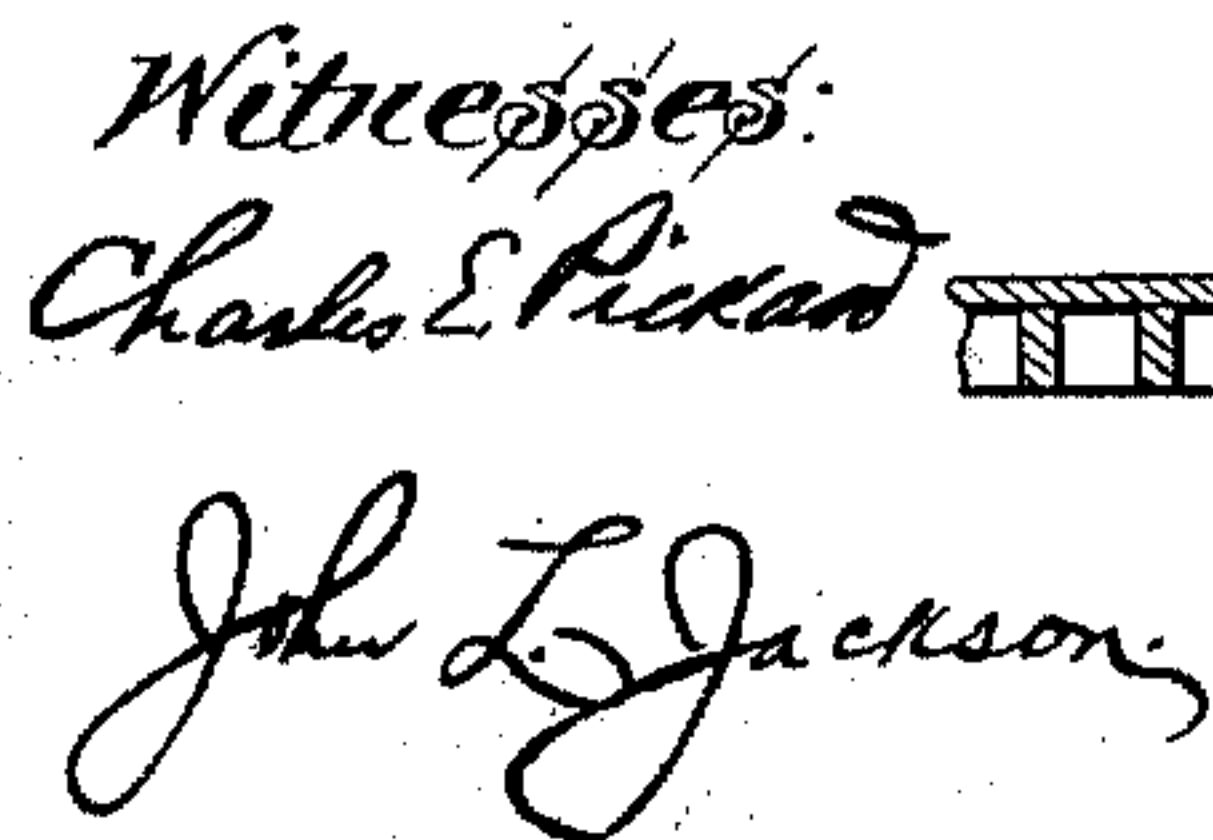 Witnesses:
Charles E Pickard
John L. Jackson.